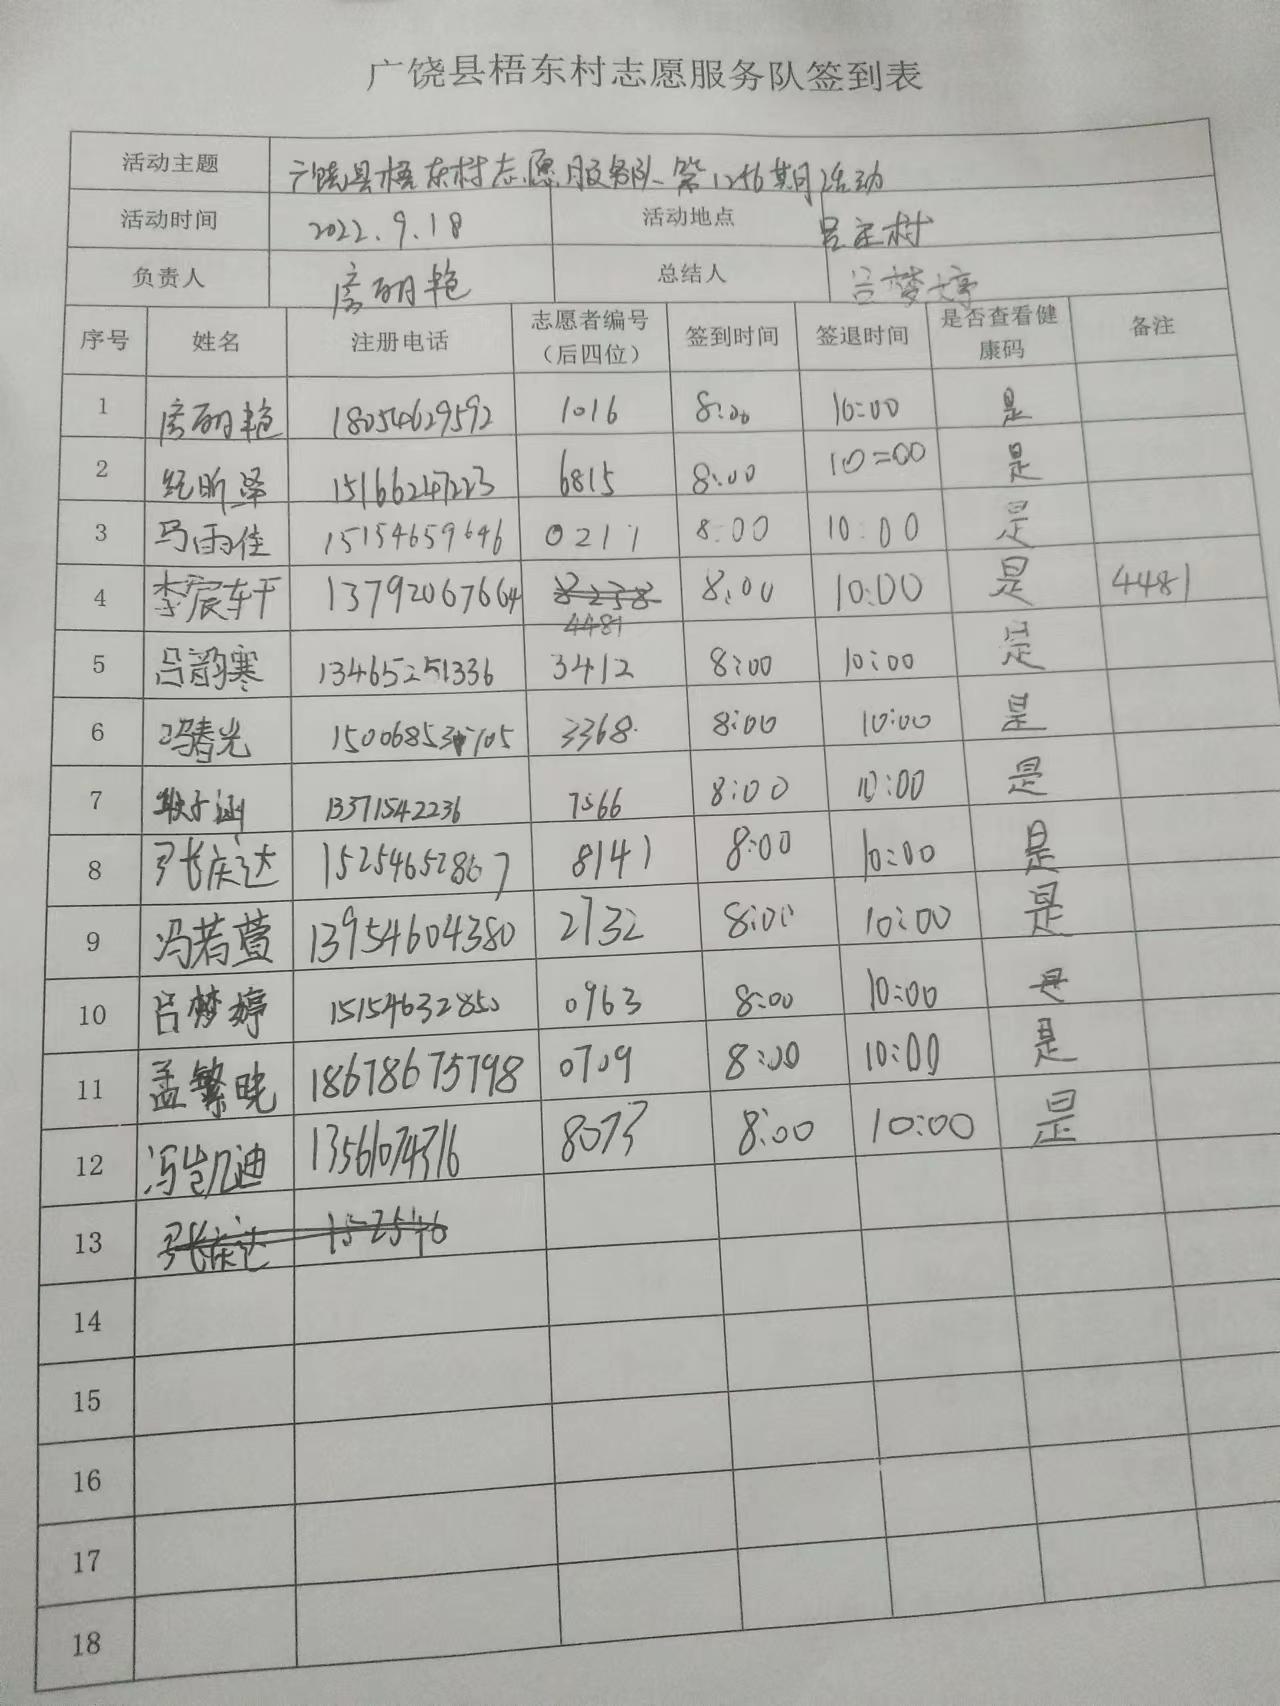 广饶县梧东村志愿服务队签到表
活动主题 广饶县梧东村志愿服务队第1256期活动
活动时间 2022.9.18 活动地点 吕庄村
负责人 房丽艳 总结人 吕梦婷
序号 姓名 注册电话 志愿者编号（后四位） 签到时间 签退时间 是否查看健康码 备注
1 房丽艳 18054629592 1016 8:00 10:00 是
2 纪昕泽 15166247223 6815 8:00 10=00 是
3 马雨佳 15154659646 0211 8:00 10:00 是
4 李宸轩 13792067664 8238 4481 8:00 10:00 是 4481
5 吕韵寒 13465251336 3412 8:00 10:00 是
6 冯春光 3368 8:00 10:00 是
7 耿子涵 13371542236 7566 8:00 10:00 是
8 张庆达 15254652867 8141 8:00 10:00 是
9 冯若萱 13954604380 2732 8:00 10:00 是
10 吕梦婷 15154632850 0963 8:00 10:00 是
11 孟繁晓 18678675798 0709 8:00 10:00 是
12 冯凯迪 13561074316 8073 8:00 10:00 是
13 张庆达 152546
14
15
16
17
18